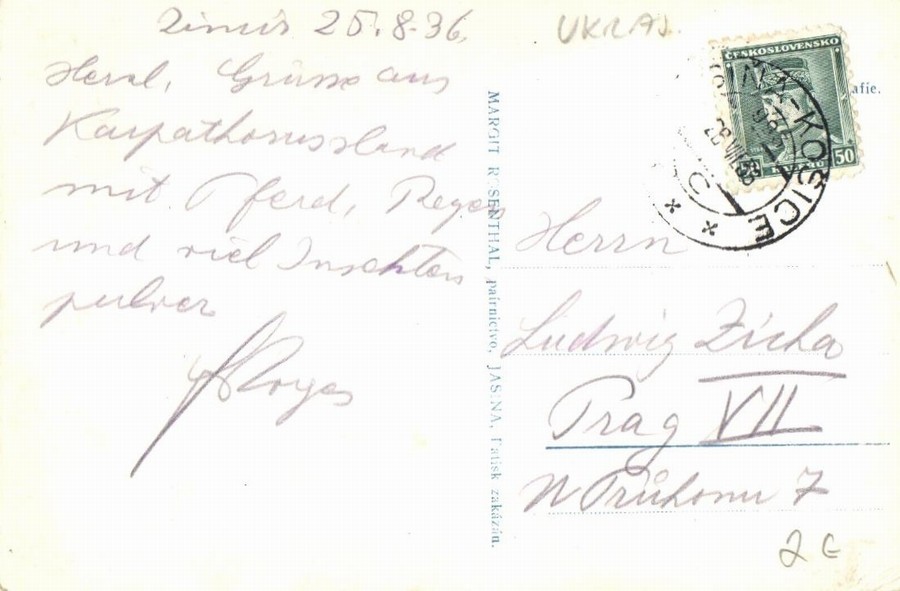 25.8.36.
Herzl. Grüsse aus
Karpathorussland
mit Pferd, Regen
und viel Insekten
pulver
UKRAJ.
ČESKOSLOVENSKO
50
KOŠICE
afie.
MARGIT ROSENTHAL, papírnictvo, JASIŇA. Patisk zakázán.
Herrn
Ludwig Zicha
Prag VII
N Průhonu 7
2 €